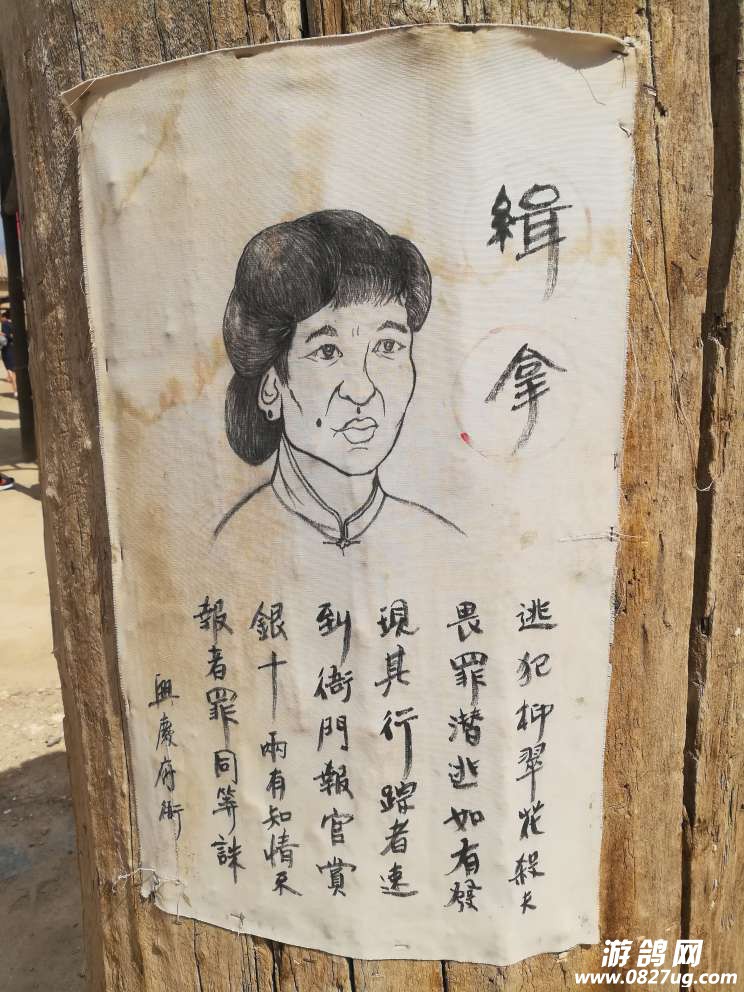 緝拿
逃犯柳翠花殺夫
畏罪潜逃如有發
現其行踪者速
到衙門報官賞
銀十兩有知情不
報者罪同等誅
興慶府衙
游鸽网
www.0827ug.com